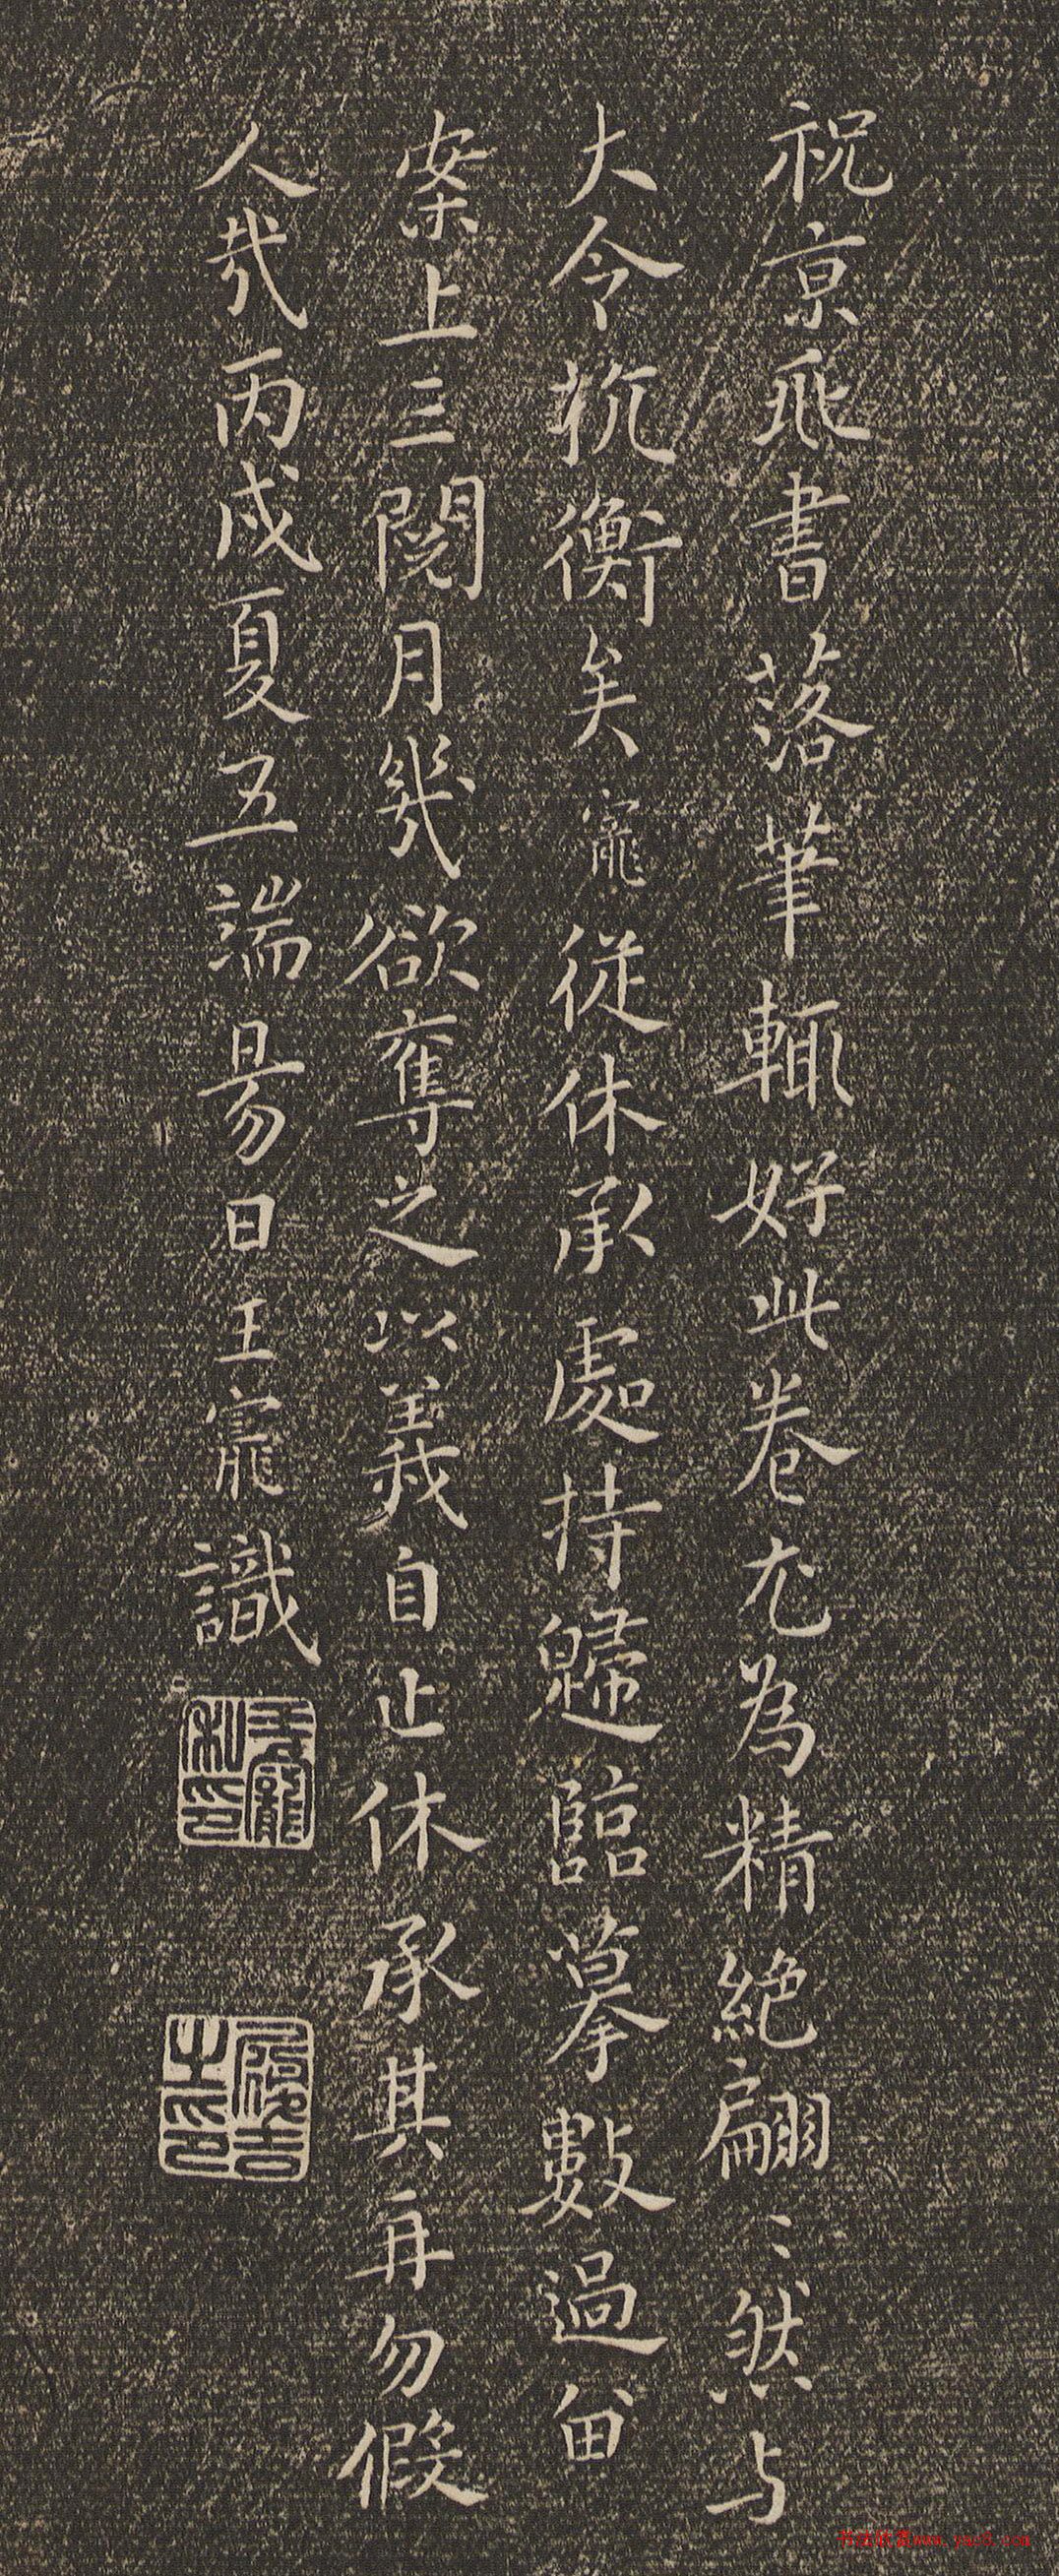 祝京兆書落筆輒好此卷尤為精絕翩〻然与
大令抗衡矣寵從休承處持歸臨摹數過留
案上三閱月幾欲奪之以義自止休承其再勿假
人哉丙戌夏五端昜日王寵識
王寵私印